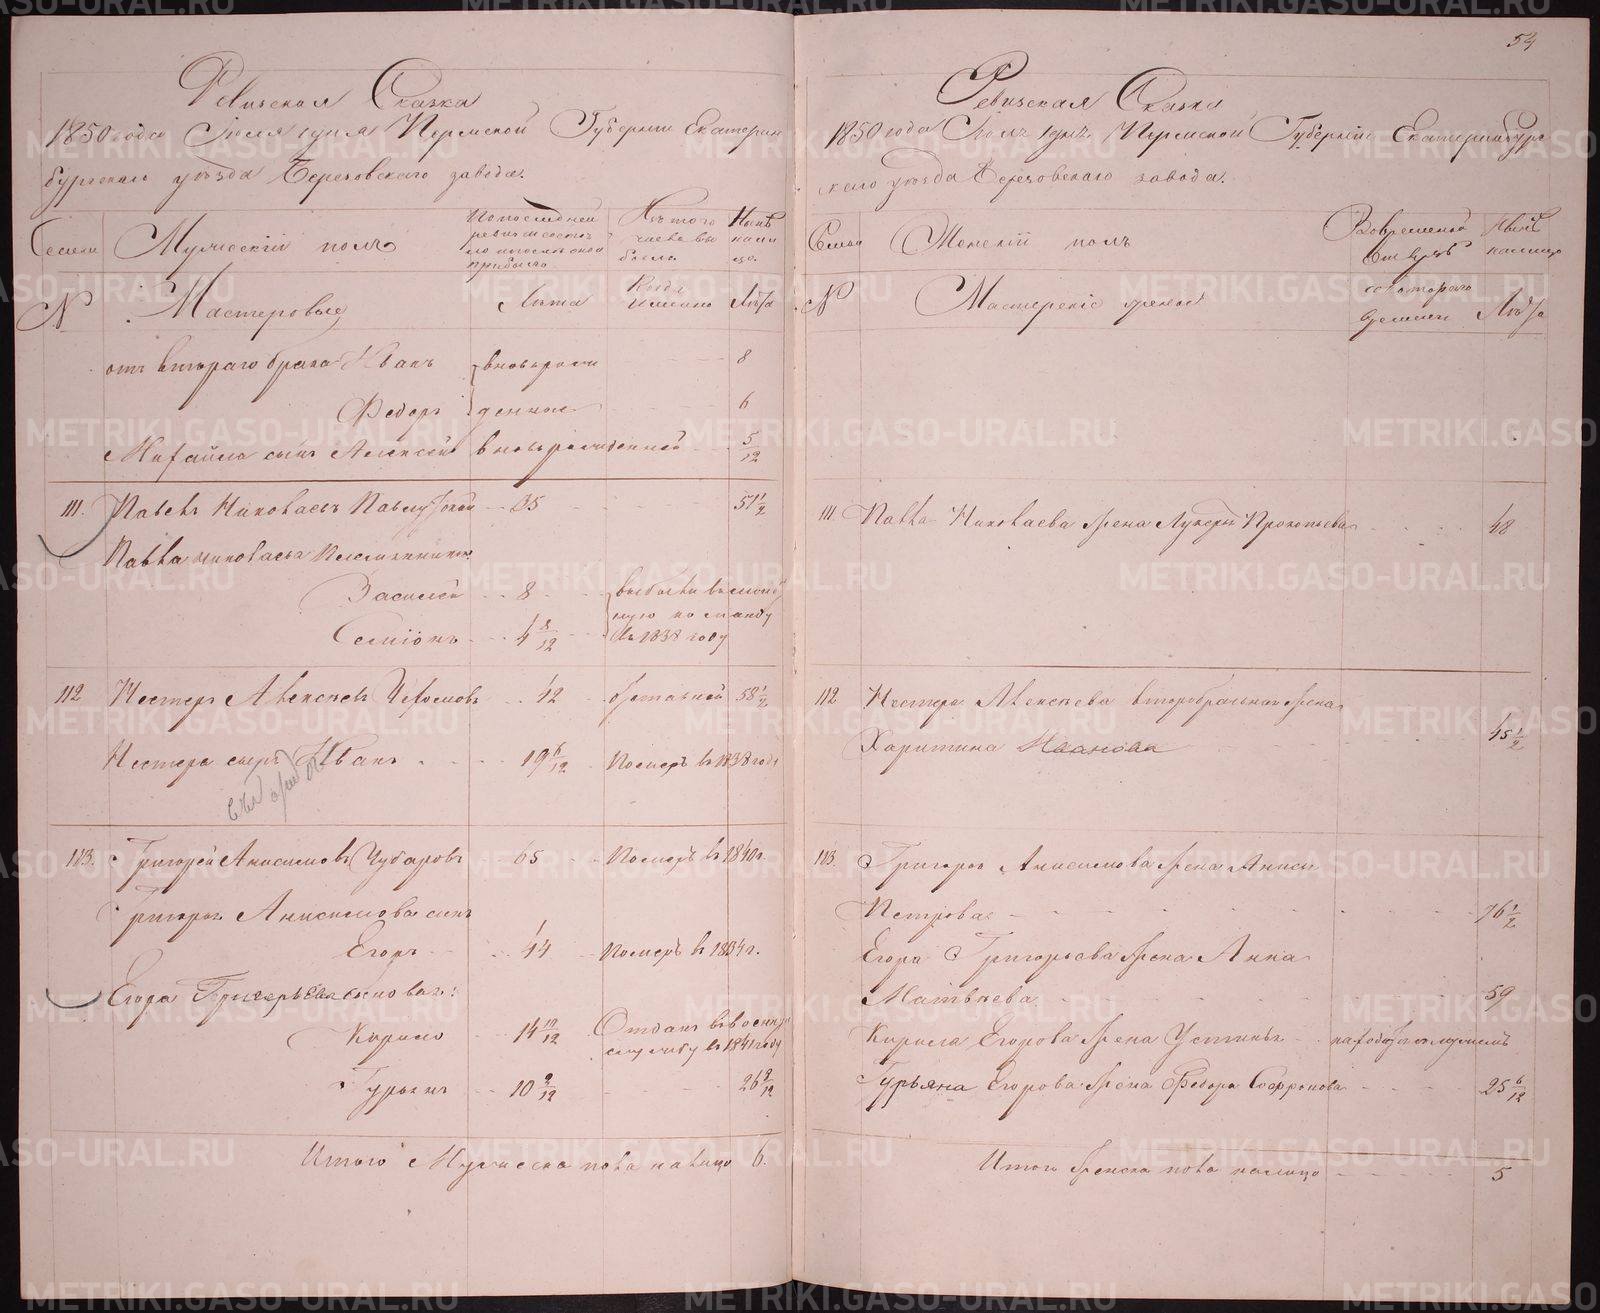 54
Ревизская Сказка
1850 года Июля 1 дня Пермской Губернии Екатерин
бургскаго уезда Березовскаго завода.
Семьи
Мужескій полъ
По последней ревизіи состояло и после оной прибыло
Изъ того числа выбыло
Ныне на лицо.
№
Мастеровые
Лета
Когда именно
Лета
отъ втораго брака Иванъ вновьрож 8
Федоръ денные 6
Михайла сынъ Алексей вновьрожденной 5/12
111. Павелъ Николаевъ 35 51 1/2
Павла Николаева племянники
Василей 8 выбыли
Семіонъ 4 8/12 въ 1838 году
112 Нестеръ Алексеевъ 42 58 1/2
Нестера сынъ Иванъ 19 6/12 Померъ въ 1838 годе
113. Григорей Анисимовъ Чубаровъ 65 Померъ въ 1840 г.
Григорья Анисимова сынъ
Егоръ 44 Померъ в 1834 г.
Егора Григорьева сыновья:
Кирило 14 10/12 Отданъ в военную службу в 1841 году
Гурьянъ 10 9/12 26 9/12
Итого Мужеска пола на лицо 6.
Ревизская Сказка
1850 года Іюль 1 дня Пермской Губерніи Екатеринбург
скаго уезда Березовскаго завода.
Семьи
Женскій полъ
Во временной отлучке
Ныне на лицо
№
Мастерскіе женки
съ котораго времени
Лета
111. Павла Николаева жена Лукерья Прокопьева 48
112 Нестера Алексеева второбрачная жена
Харитина Иванова 45 1/2
113. Григорья Анисимова жена Анисья
Петрова 76 1/2
Егора Григорьева жена Анна
Матвеева 59
Кирила Егорова жена Устинья
Гурьяна Егорова жена Федора Софронова 25 6/12
Итого женска пола на лицо 5
METRIKI.GASO-URAL.RU